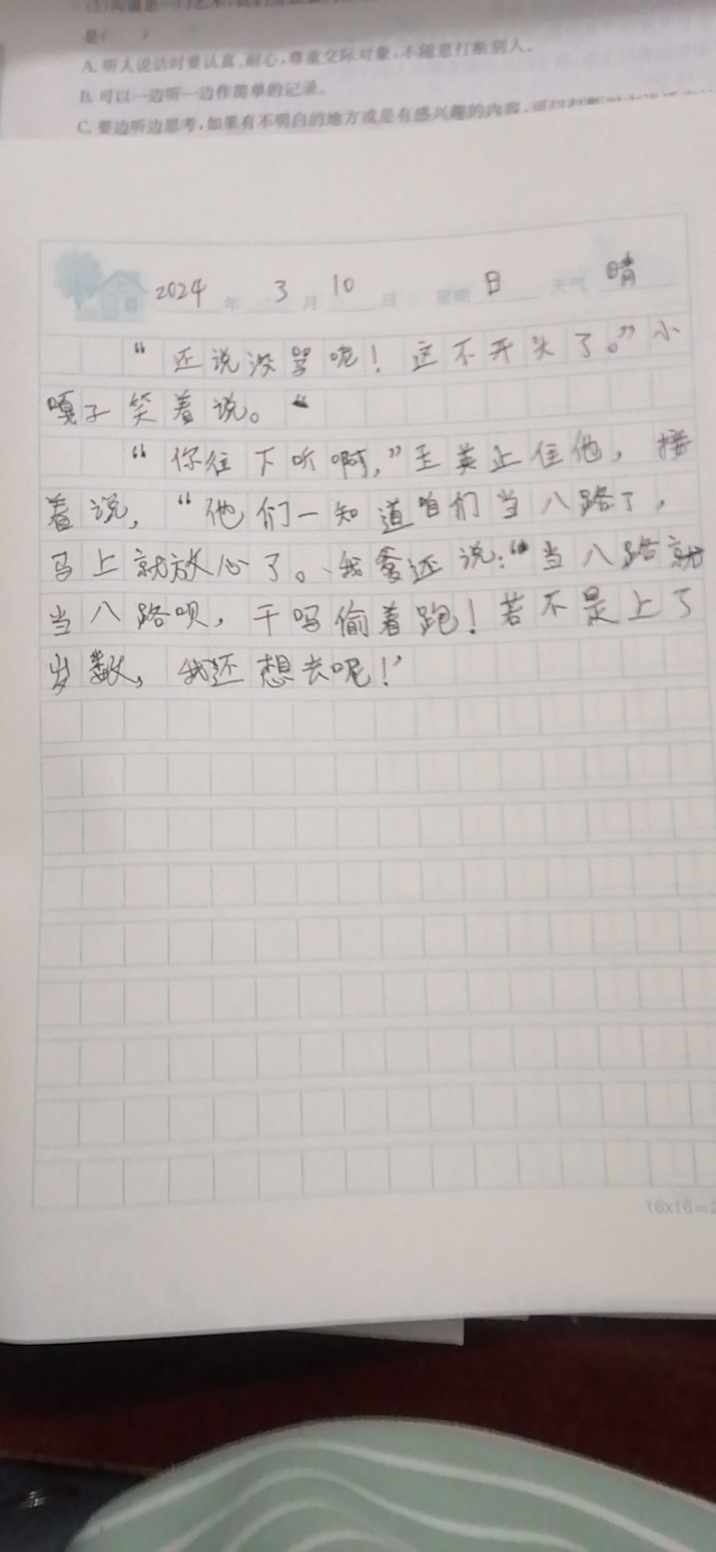 是(　　)
A. 听人说话时要认真、耐心,尊重交际对象,不随意打断别人。
B. 可以一边听一边作简单的记录。
C. 要边听边思考,如果有不明白的地方或是有感兴趣的内容,
2024 年 3 月 10 日 星期 日 天气 晴
“还说没骂呢！这不开头了。”小
嘎子笑着说。“
“你往下听啊，”王英止住他，接
着说，“他们一知道咱们当八路了，
马上就放心了。我爹还说：“当八路就
当八路呗，干吗偷着跑！若不是上了
岁数，我还想去呢！’
16x16=2